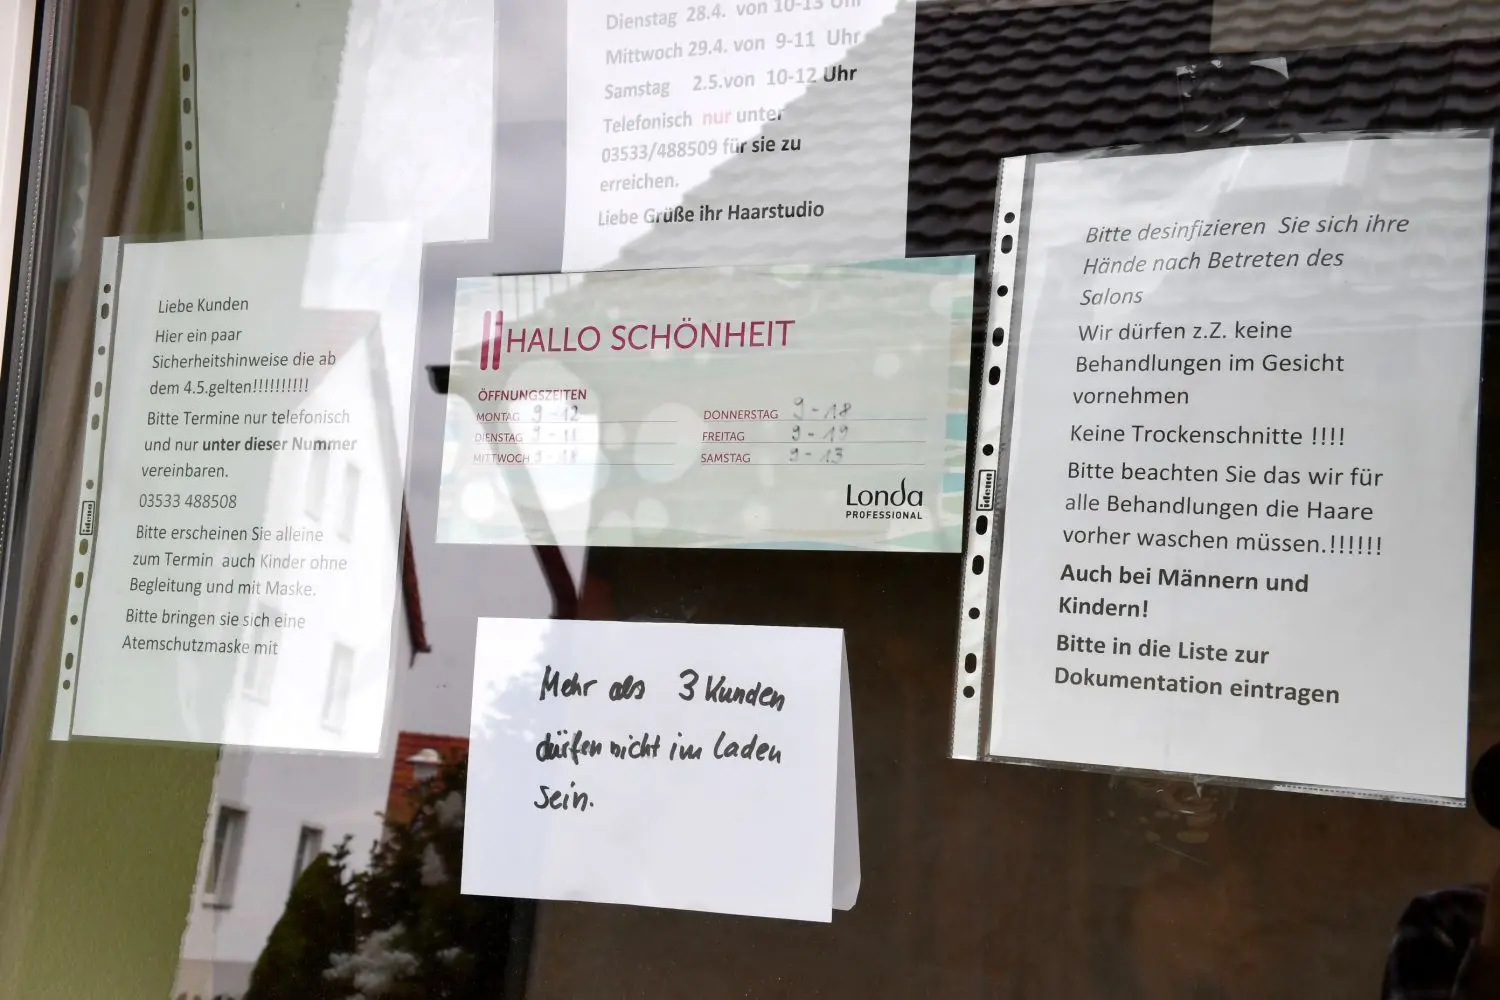 Dienstag 28.4. von 10-13 Uhr
Mittwoch 29.4. von 9-11 Uhr
Samstag 2.5.von 10-12 Uhr
Telefonisch nur unter
03533/488509 für sie zu
erreichen.
Liebe Grüße ihr Haarstudio
Liebe Kunden
Hier ein paar
Sicherheitshinweise die ab
dem 4.5.gelten!!!!!!!!!!
Bitte Termine nur telefonisch
und nur unter dieser Nummer
vereinbaren.
03533 488508
Bitte erscheinen Sie alleine
zum Termin auch Kinder ohne
Begleitung und mit Maske.
Bitte bringen sie sich eine
Atemschutzmaske mit
HALLO SCHÖNHEIT
ÖFFNUNGSZEITEN
MONTAG 9-12
DIENSTAG 9-
MITTWOCH 9-18
DONNERSTAG 9-18
FREITAG 9-19
SAMSTAG 9-13
Londa
PROFESSIONAL
Mehr als 3 Kunden
dürfen nicht im Laden
sein.
Bitte desinfizieren Sie sich ihre
Hände nach Betreten des
Salons
Wir dürfen z.Z. keine
Behandlungen im Gesicht
vornehmen
Keine Trockenschnitte !!!!
Bitte beachten Sie das wir für
alle Behandlungen die Haare
vorher waschen müssen.!!!!!!
Auch bei Männern und
Kindern!
Bitte in die Liste zur
Dokumentation eintragen
idena
idena